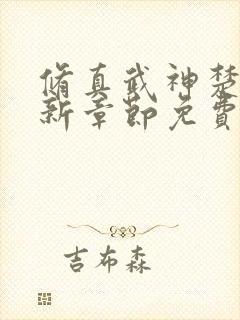 脩真武神楚
新章節免費
吉布森